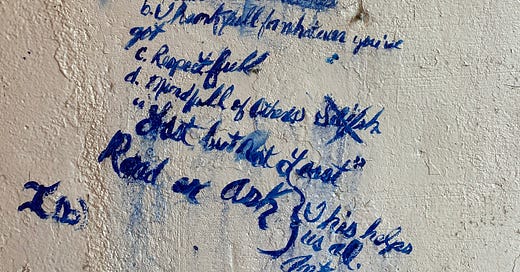 b. Thankfull for whatever you've
got
c. Respectfull
d. Mindfull of others
"Last but not Least"
Read or ask
This helps
us all.